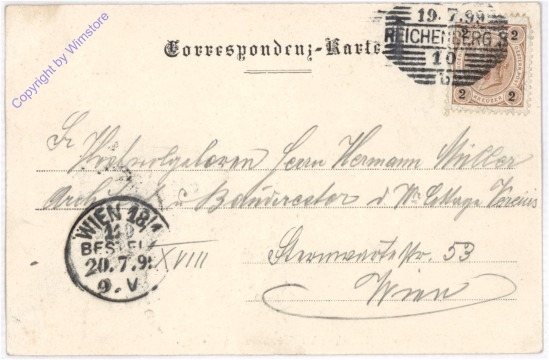 Copyright by Wimstore
19.7.99
REICHENBERG
10
Correspondenz-Karte
2 2
2 2
KREUZER
Sr Hochwolgeboren Herrn Hermann Müller
Architect u Baudirector d Wr Cottage Vereins
XVIII Sternwartestr. 53
Wien
WIEN 18/1
BESTELLT
20.7.9
9.V